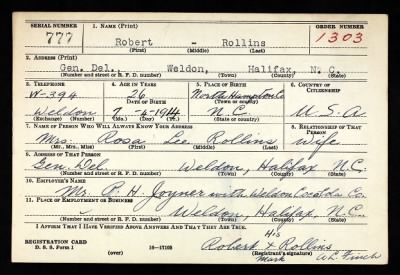 SERIAL NUMBER 1. NAME (Print) ORDER NUMBER
777 Robert - Rollins 1303
(First) (Middle) (Last)
2. ADDRESS (Print)
Gen. Del., Weldon, Halifax, N. C.
(Number and street or R. F. D. number) (Town) (County) (State)
3. TELEPHONE 4. AGE IN YEARS 5. PLACE OF BIRTH 6. COUNTRY OF CITIZENSHIP
W-394 26 Northampton Co
DATE OF BIRTH (Town or county)
Weldon 7-4-1914 N.C. U.S.A
(Exchange) (Number) (Mo.) (Day) (Yr.) (State or country)
7. NAME OF PERSON WHO WILL ALWAYS KNOW YOUR ADDRESS 8. RELATIONSHIP OF THAT PERSON
Mrs. Rosa Lee Rollins Wife
(Mr., Mrs., Miss) (First) (Middle) (Last)
9. ADDRESS OF THAT PERSON
Gen Del Weldon, Halifax N.C.
(Number and street or R. F. D. number) (Town) (County) (State)
10. EMPLOYER'S NAME
Mr. P. H. Joyner with Weldon Co.
11. PLACE OF EMPLOYMENT OR BUSINESS
Weldon, Halifax, N.C.
(Number and street or R. F. D. number) (Town) (County) (State)
I AFFIRM THAT I HAVE VERIFIED ABOVE ANSWERS AND THAT THEY ARE TRUE.
His
REGISTRATION CARD 16-17105 Robert X Rollins
D. S. S. Form 1 (over) (Registrant's signature)
Mark W L Finch